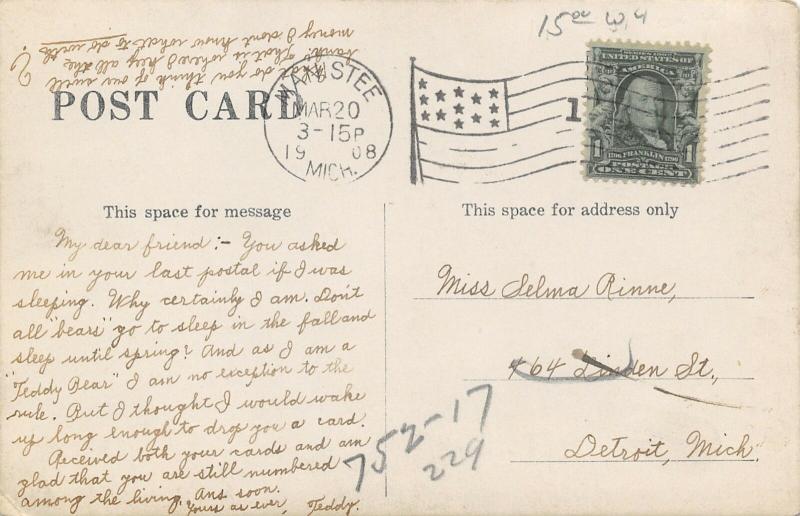 What do you think of our swell
bank? That is where I key all the
money I don't know what to do with
15 on W, 4
POST CARD
MANISTEE
MAR 20
3-15P
1908
MICH.
1
UNITED STATES OF
AMERICA
1706 FRANKLIN 1790
1 POSTAGE 1
ONE CENT
This space for message
This space for address only
My dear friend:- You asked
me in your last postal if I was
sleeping. Why certainly I am. Don't
all "bears" go to sleep in the fall and
sleep until spring? And as I am a
"Teddy Bear" I am no exception to the
rule. But I thought I would wake
up long enough to drop you a card.
Received both your cards and am
glad that you are still numbered
among the living. Ans soon.
Yours as ever, Teddy.
Miss Selma Rinne,
464 Linden St.,
Detroit, Mich.
752-17
229